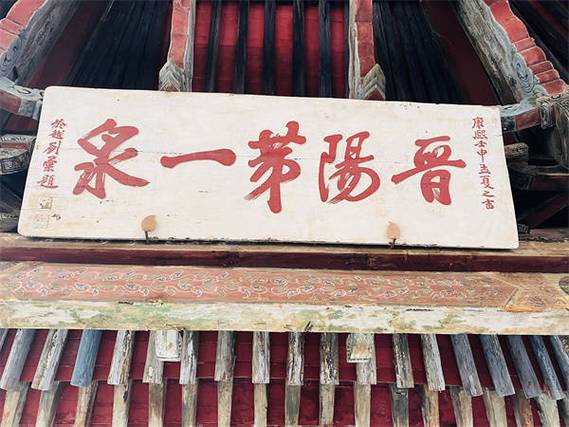 康熙壬申孟夏之吉
晉陽苐一泉
於越刘題